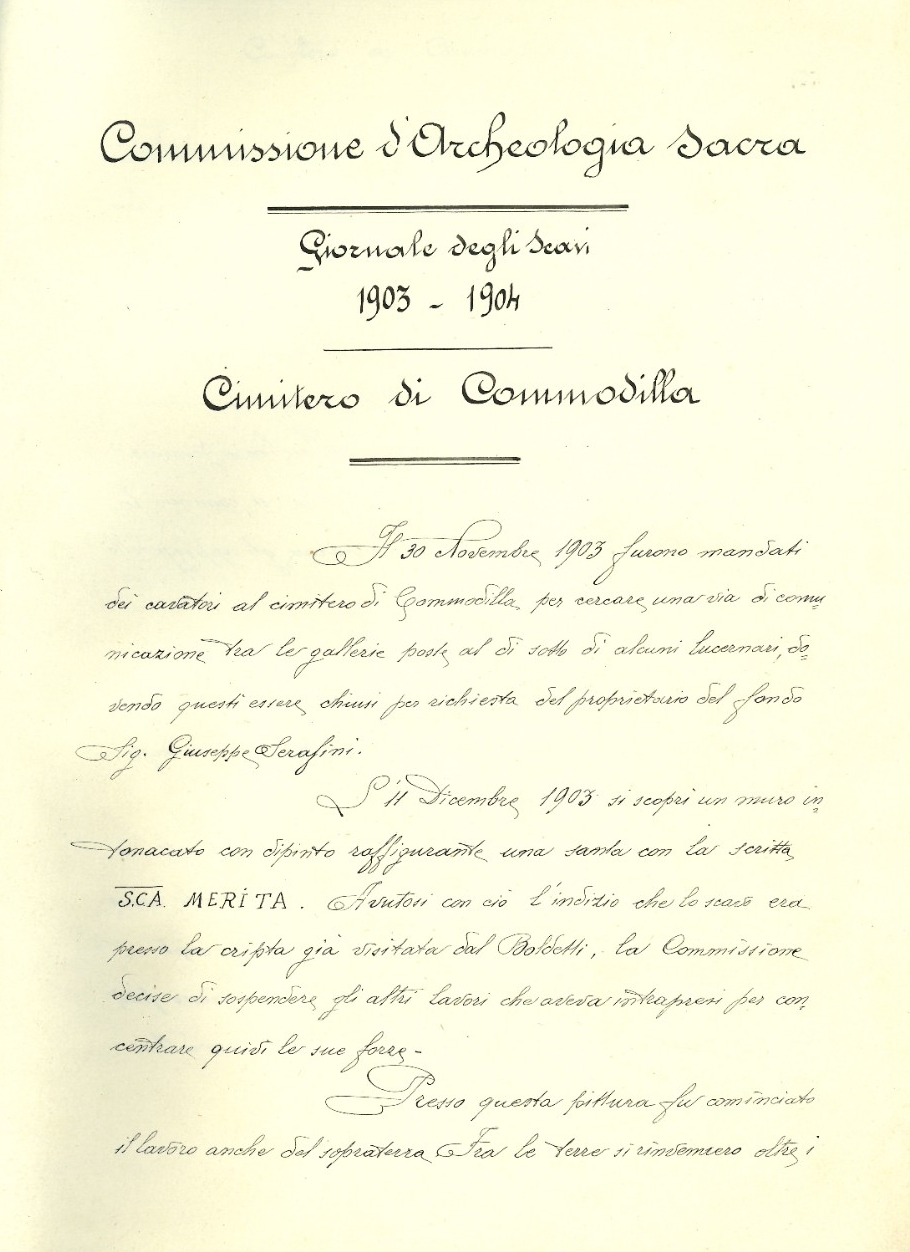 Commissione d'Archeologia Sacra
Giornale degli Scavi
1903 - 1904
Cimitero di Commodilla
Il 30 Novembre 1903 furono mandati
dei cavatori al cimitero di Commodilla per cercare una via di comu=
nicazione tra le gallerie poste al di sotto di alcuni lucernari, do=
vendo questi essere chiusi per richiesta del proprietario del fondo
Sig. Giuseppe Serafini.
L'11 Dicembre 1903 si scoprì un muro in=
tonacato con dipinto raffigurante una santa con la scritta
S.C.A. MERITA. Avutosi con ciò l'indizio che lo scavo era
presso la cripta già visitata dal Boldetti, la Commissione
decise di sospendere gli altri lavori che aveva intrapresi per con=
centrare quivi le sue forze -
Presso questa pittura fu cominciato
il lavoro anche del sopraterra Fra le terre si rinvennero oltre i